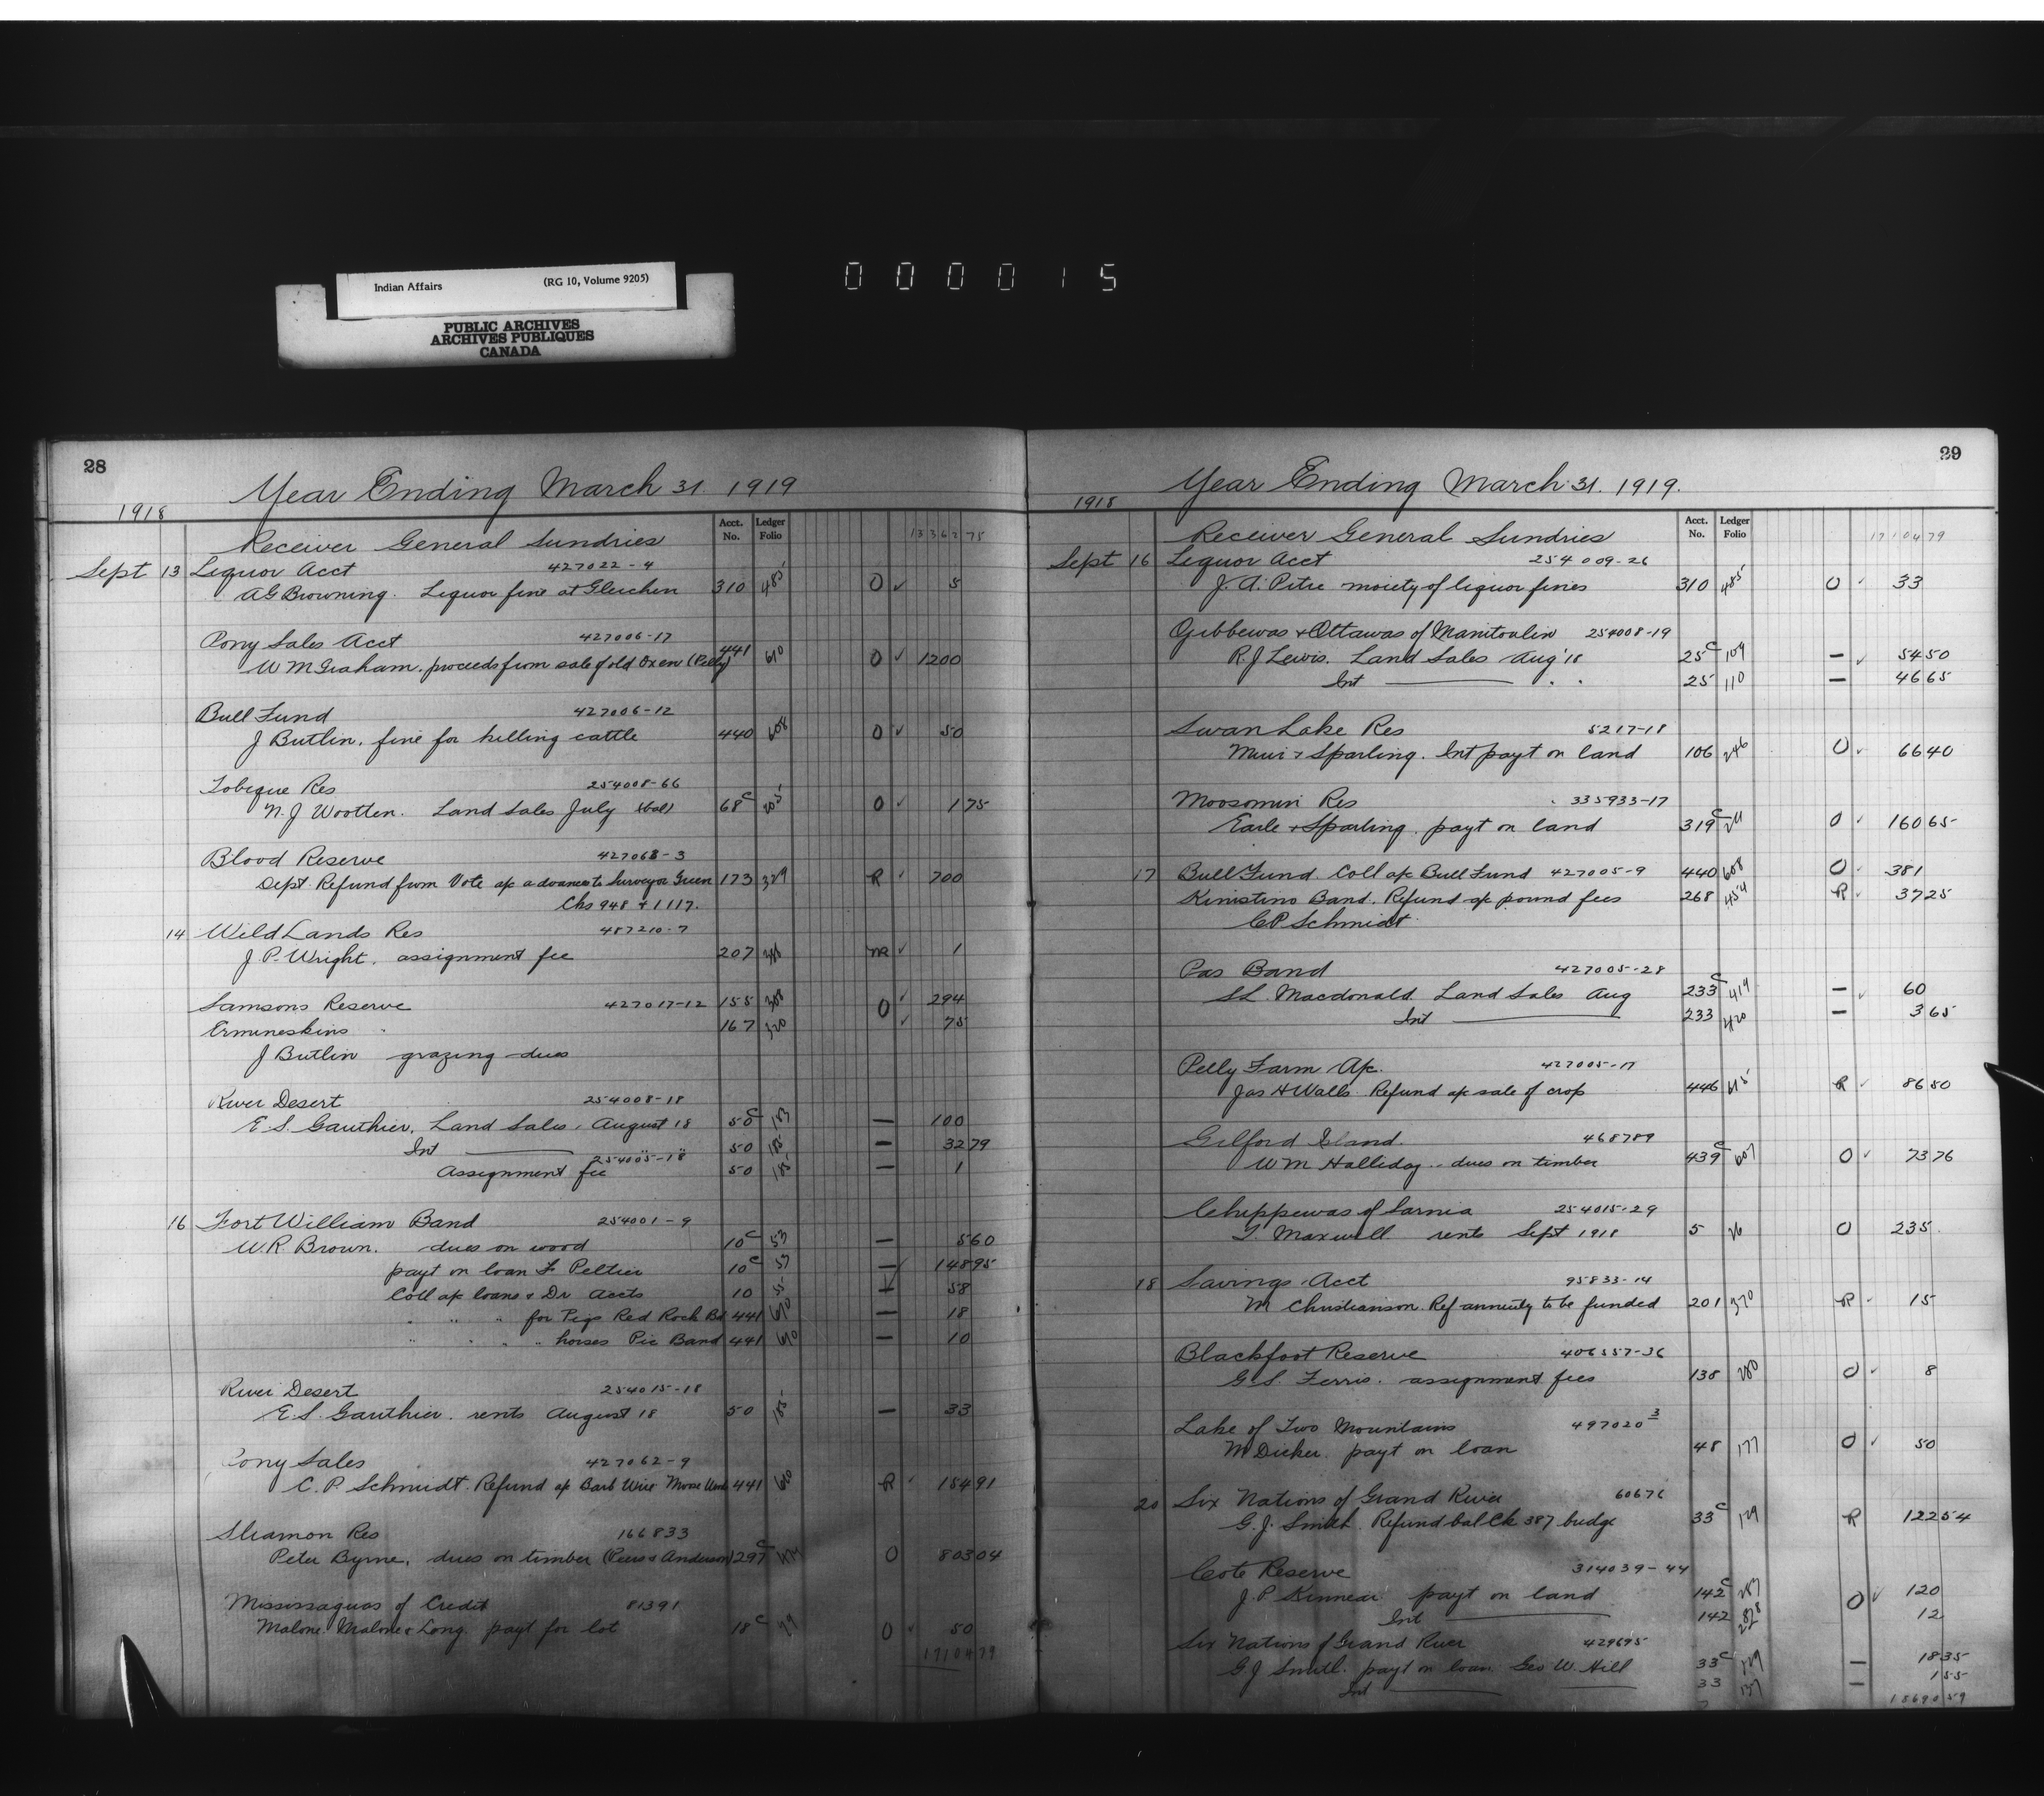 Indian Affairs (RG 10, Volume 9205)
PUBLIC ARCHIVES
ARCHIVES PUBLIQUES
CANADA
000015
28
Year Ending March 31. 1919
1918
Acct. No. Ledger Folio
Receiver General Sundries 13362 75
Sept 13 Liquor Acct 427022-4
A G Browning. Liquor fine at Gleichen 310 485 O ✓ 5
Pony Sales Acct 427006-17
W M Graham. proceeds from sale of old Oxen (Pelly) 441 610 O ✓ 1200
Bull Fund 427006-12
J Butlin. fine for killing cattle 440 608 O ✓ 50
Tobique Res 254008-66
N. J Wootten. Land Sales July (bal) 68c 205 O ✓ 1 75
Blood Reserve 427063-3
Dept. Refund from Vote a/c advances to Surveyor Green 173 329 R ✓ 700
Chs 948 & 1117.
14 Wild Lands Res 487210-7
J P. Wright. assignment fee 207 ✓ 1
Samsons Reserve 427017-12 155 308 O ✓ 294
Ermineskins " 167 320 ✓ 75
J Butlin grazing dues
River Desert 254008-18
E. S. Gauthier. Land Sales. August 18 50c 183 — 100
Int " " 50 185 — 32 79
254005-18
Assignment fee 50 185 — 1
16 Fort William Band 254001-9
W. R Brown. dues on wood 10c 53 — 5 60
payt on loan F Peltier 10c 53 — 148 95
Coll a/c loans & Dr Accts 10 55 — 58
" " " for Pigs Red Rock Bd 441 610 — 18
" " " " horses Pic Band 441 610 — 10
River Desert 254015-18
E. S. Gauthier. rents August 18 50 185 — 33
Pony Sales 427062-9
C. P. Schmidt. Refund a/c Barb Wire Moose Woods 441 610 R ✓ 154 91
Sliamon Res 166833
Peter Byrne. dues on timber (Peers & Anderson) 297c O 803 04
Mississaguas of Credit 81391
Malone. Malone & Long. payt for lot 18c 79 O ✓ 50
17104 79
29
Year Ending March 31. 1919.
1918
Acct. No. Ledger Folio
Receiver General Sundries 17104 79
Sept 16 Liquor Acct 254009-26
J. A. Pitre moiety of liquor fines 310 485 O ✓ 33
Ojibbewas & Ottawas of Manitoulin 254008-19
R. J Lewis. Land Sales Aug '18 25c 109 — ✓ 54 50
Int " " 25 110 — 46 65
Swan Lake Res 5217-18
Muir & Sparling. Int payt on land 106 246 O ✓ 66 40
Moosomin Res 335933-17
Earle & Sparling. payt on land 319c O ✓ 160 65
17 Bull Fund. Coll a/c Bull Fund 427005-9 440 608 O ✓ 381
Kinistino Band. Refund a/c pound fees 268 454 R ✓ 37 25
C P Schmidt.
Pas Band 427005-28
S L. Macdonald. Land Sales Aug 233c 419 — ✓ 60
Int 233 420 — 3 65
Pelly Farm A/c. 427005-17
Jas H Walls. Refund a/c sale of crop 446 615 R ✓ 86 50
Gilford Island. 468789
W M Halliday. dues on timber 439c 607 O ✓ 73 76
Chippewas of Sarnia 254015-29
T Maxwell rents Sept 1918 5 26 O 235
18 Savings Acct 95833-14
M Christianson. Ref annuity to be funded 201 370 R ✓ 15
Blackfoot Reserve 406557-36
G. S. Ferris. assignment fees 138 280 O ✓ 8
Lake of Two Mountains 497020 3
M Dicker payt on loan 48 177 O ✓ 50
20 Six Nations of Grand River 60676
G. J. Smith. Refund bal Ck 387 budge 33c 129 R 122 54
Cote Reserve 314039-44
J. P Kinnear payt on land 142c 287 O ✓ 120
Int 142 288 12
Six Nations of Grand River 429695
G J Smith. payt on loan. Geo W. Hill 33c 129 — 18 35
Int 33 137 — 1 55
18690 59